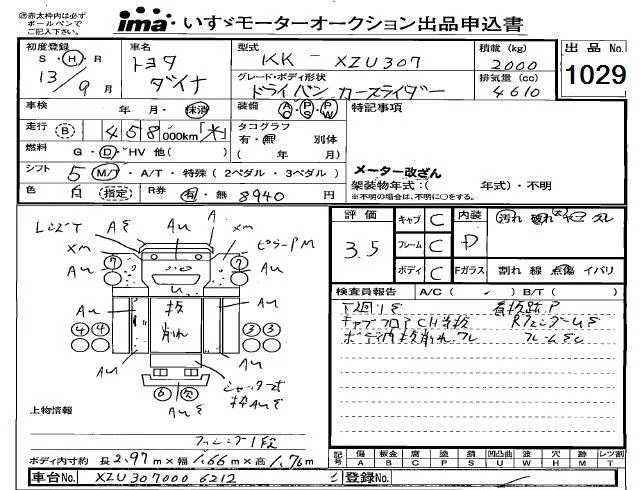 ㊟赤太枠内は必ず
ボールペンで
ご記入下さい。
ima いすゞモーターオークション出品申込書
初度登録 車名 型式 積載 (kg) 出品No.
S・Ⓗ・R トヨタ KK-XZU307 2000 1029
13/9月 ダイナ グレード・ボディ形状 排気量 (cc)
ドライバン カースライダー 4610
車検 年 月・抹消 装備 AC PS PW 特記事項
走行 Ⓑ 458,000km「*」 タコグラフ
有・無 別体
燃料 G・Ⓓ・HV 他( ) ( 年 月)
シフト 5 M/T・A/T・特殊(2ペダル・3ペダル) メーター改ざん
架装物年式:( 年式)・不明
色 白 指定 R券 有・無 8940円 ※不明の場合は、不明に○をする。
評価 キャブ C 内装 汚れ 破れ ヤニ スレ
3.5 フレーム C D
ボディ C Fガラス 割れ 線 点傷 イバリ
検査員報告 A/C( ) B/T( )
下廻りS 看板跡P
キャブフロアCH 鉄板 Rフェンダー
ボディ内 板削れ フレ
レンズT A Au A
XM Au XM
ピラーPM
⑦ ⑦
Au Au
Au 板 削れ Au
④④ ③③
⑥ 欠
シャッター
Au
上物情報
1段
ボディ内寸約 長2.97m×幅1.66m×高1.76m
記号 傷 A 板金 B 腐 C 塗 P 錆 S 凹凸曲 U 波 W 穴 H 跡 M レツ割 T
車台No. XZU3070006212 登録No.